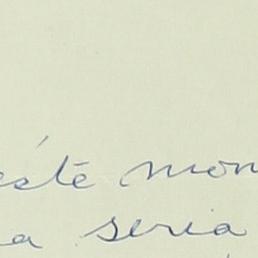 éste mon
a seria